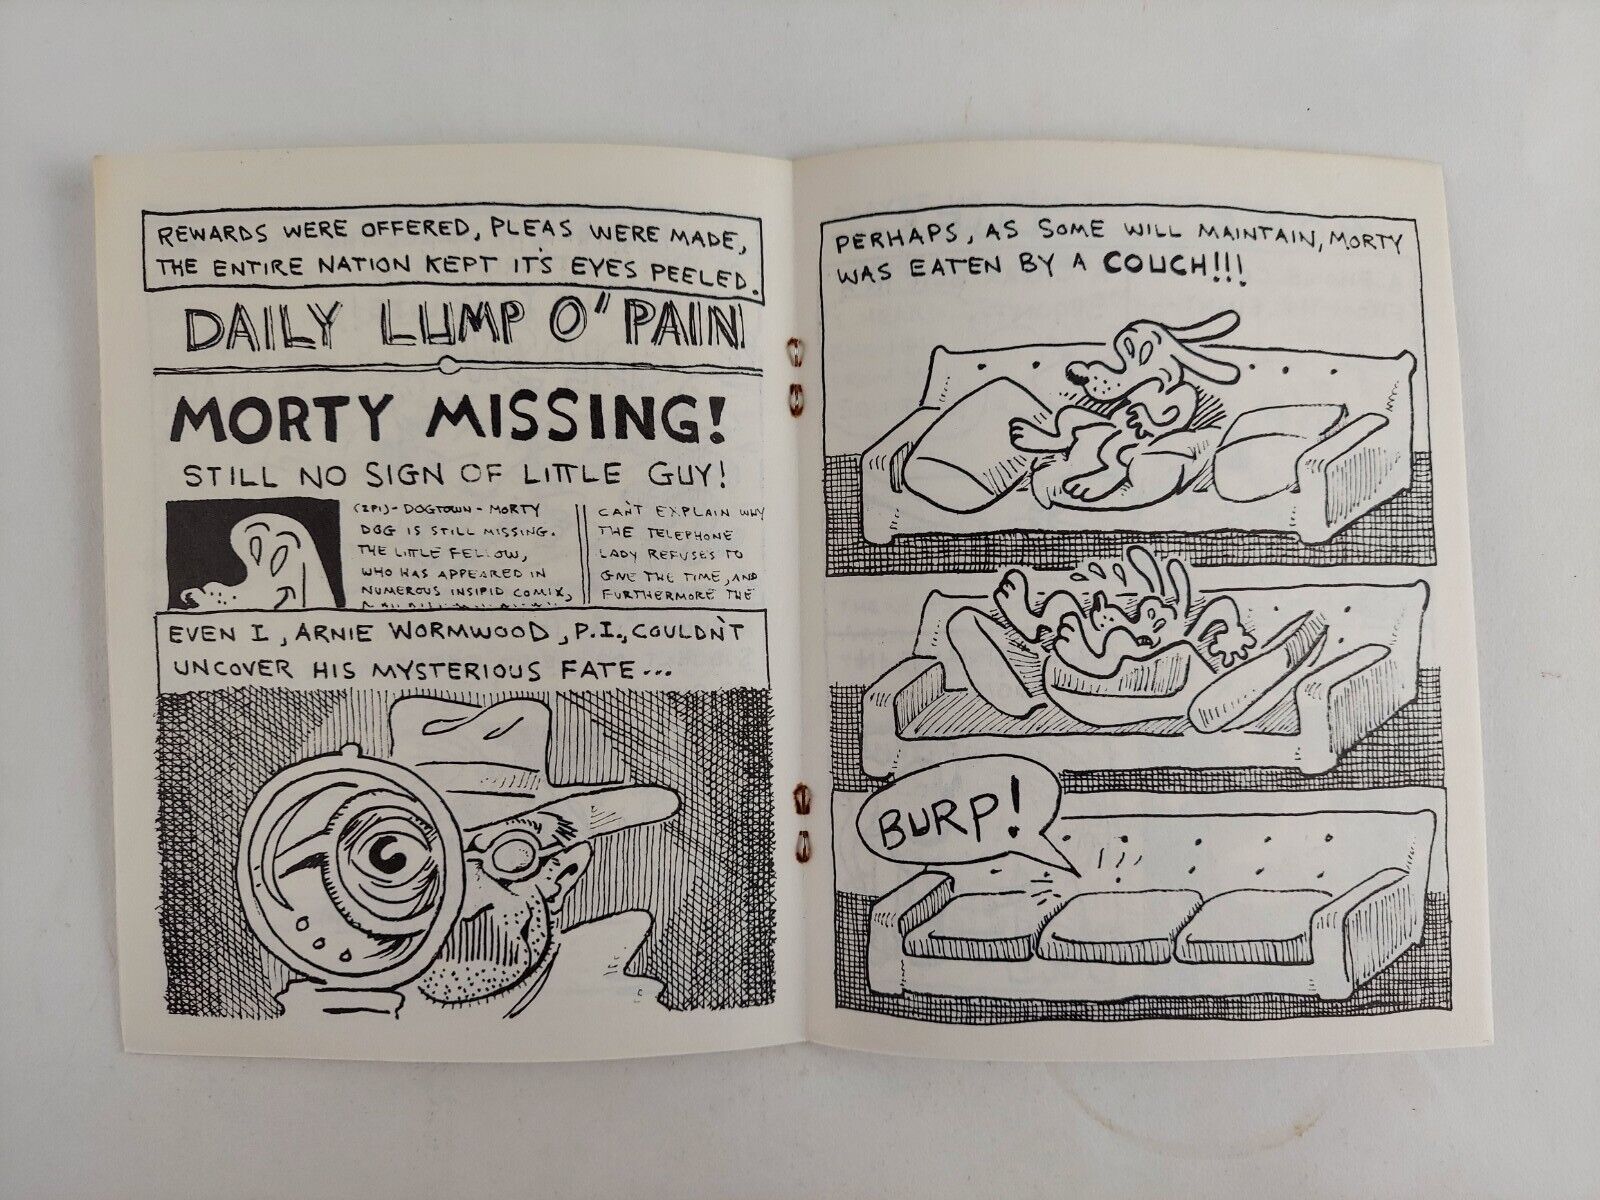 REWARDS WERE OFFERED, PLEAS WERE MADE,
THE ENTIRE NATION KEPT IT'S EYES PEELED.
DAILY LUMP O' PAIN
MORTY MISSING!
STILL NO SIGN OF LITTLE GUY!
(ZPI)- DOGTOWN - MORTY
DOG IS STILL MISSING.
THE LITTLE FELLOW,
WHO HAS APPEARED IN
NUMEROUS INSIPID COMIX,
CAN'T EXPLAIN WHY
THE TELEPHONE
LADY REFUSES TO
GIVE THE TIME, AND
FURTHERMORE THE
EVEN I, ARNIE WORMWOOD, P.I., COULDN'T
UNCOVER HIS MYSTERIOUS FATE...
PERHAPS, AS SOME WILL MAINTAIN, MORTY
WAS EATEN BY A COUCH!!!
BURP!